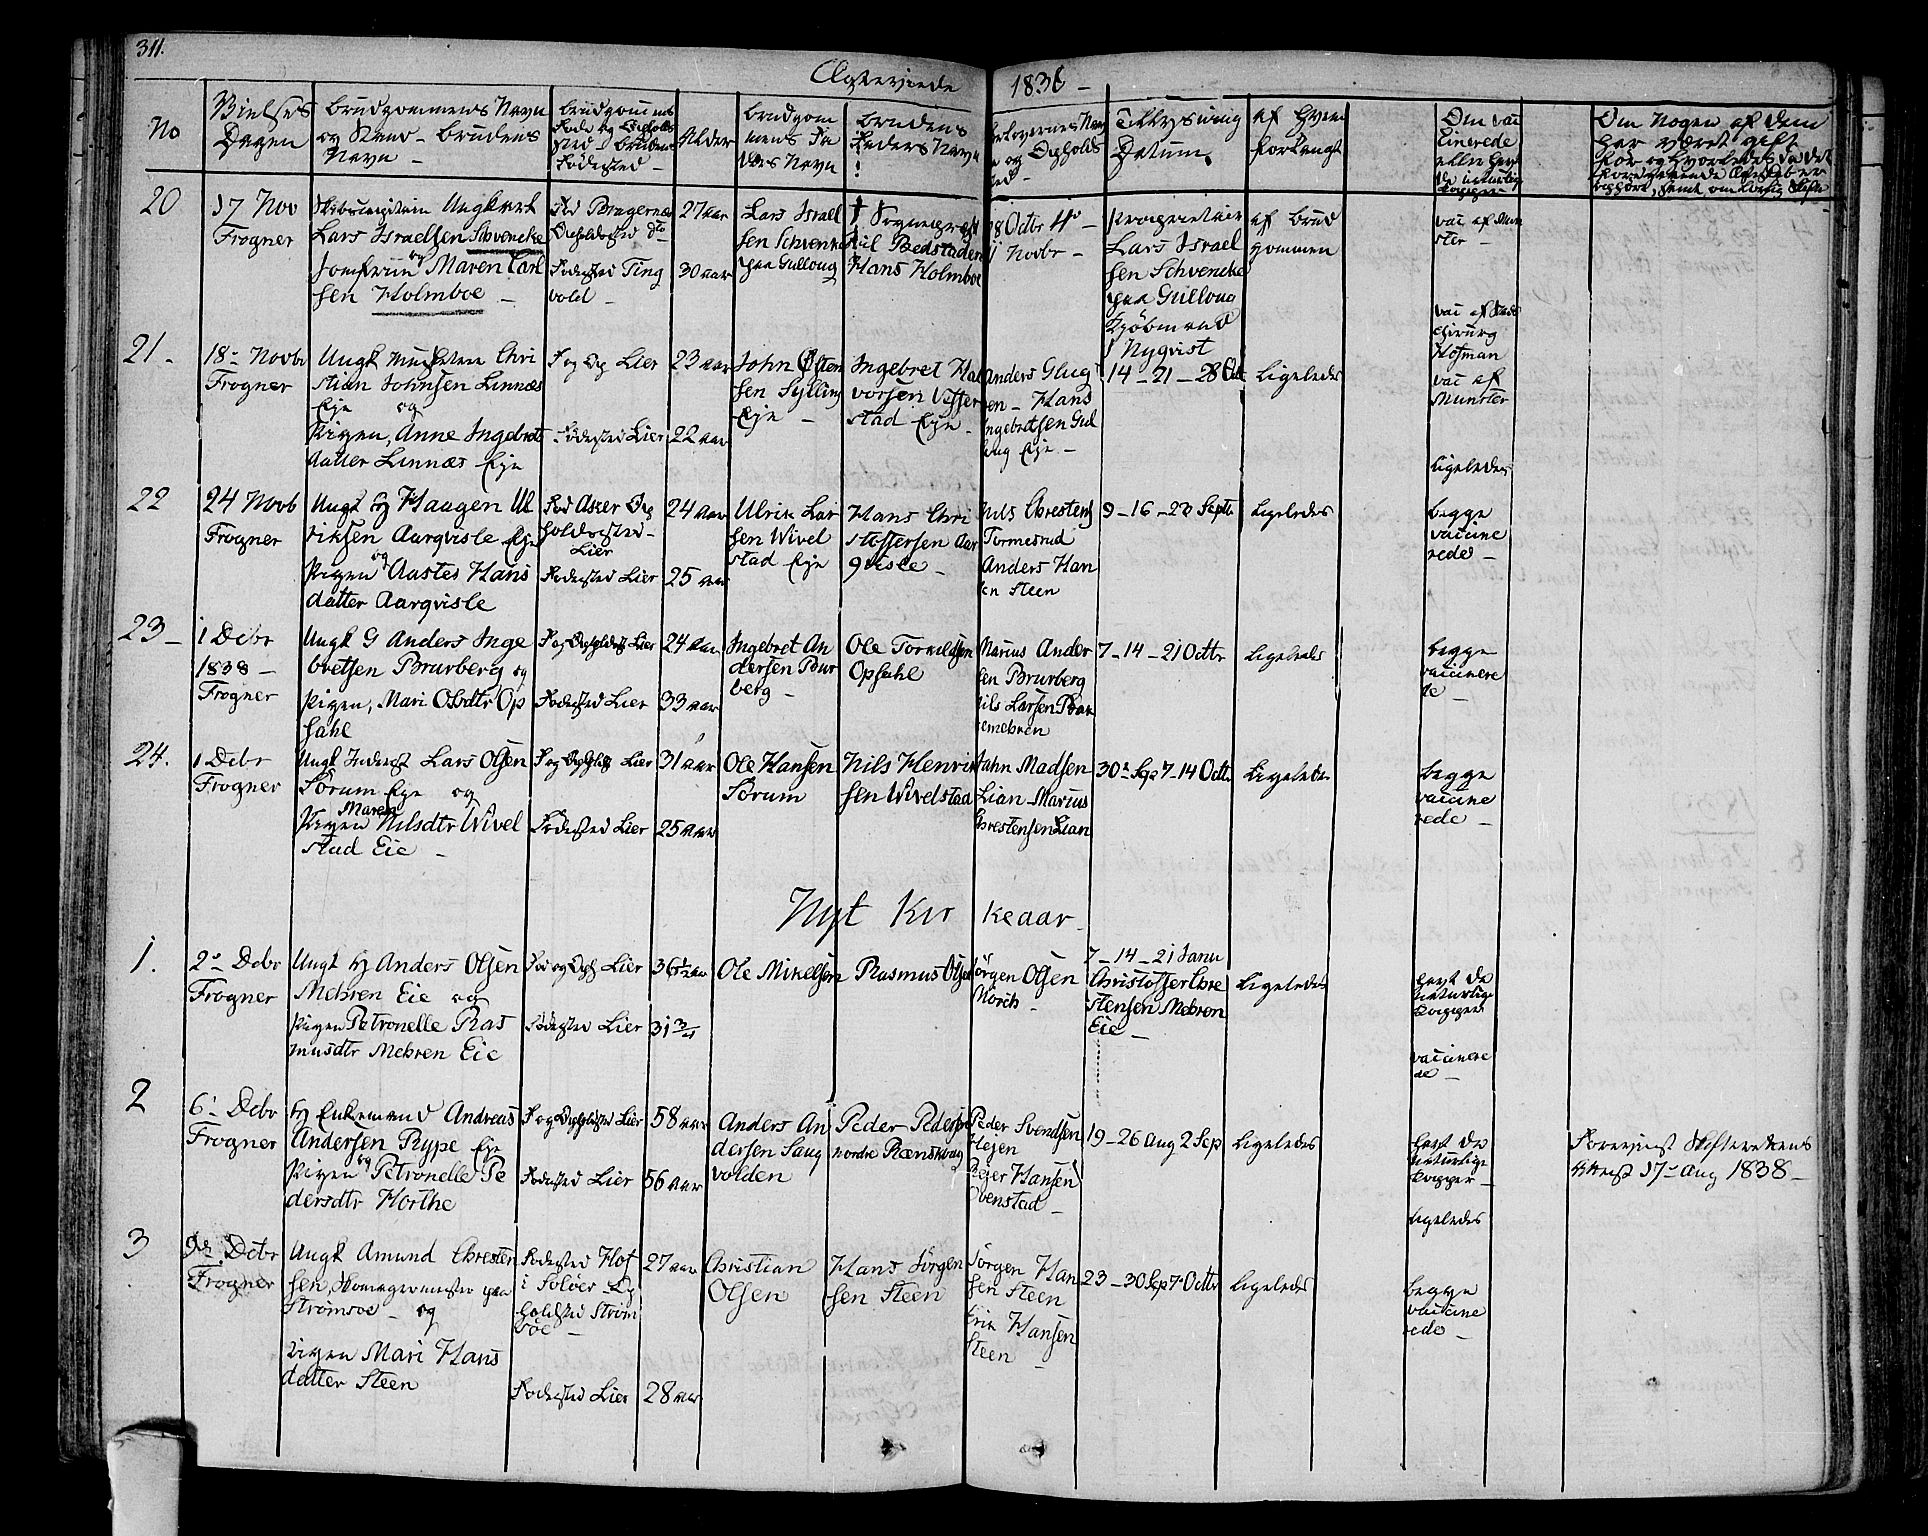 311.
Ægteviede 1838 -
No
Vielses Dagen
Brudgommens Navn og Stand - Brudens Navn -
Brudgommens Føde og Opholds Sted - Brudens Fødested -
Alder
Brudgommens Faders Navn
Brudens Faders Navn
Forlovernes Navn og Opholdssted -
Tillysning Datum.
af Hvem forlangt
Om vaccinerede eller havt de naturlige Kopper
Om Nogen af dem har været gift før og hvorledes da det foregaaende Ægteskab er ophørt, samt om lovlig Skifte
20
17 Nov
Frogner
Skibscapitain Ungkarl
Lars Israelsen Schvencke
og
Jomfrue Maren Carl
sen Holmboe -
Fød Bragernæs
Opholdssted do
Fødested Ting
vold -
27 aar
30 aar
Lars Israel
sen Schvenke
paa Gulloug
† Sogneprest
til Bedstaden
Hans Holmboe
28 Octbr
11 Novbr -
Proprietair
Lars Israel
sen Schvencke
paa Gulloug
Kjöbmand
Nyqvist
af Brud
gommen
vac af Mun
ster -
vac af Stads
Chirurg
Hofman
21 -
18 - Novbr
Frogner
Ungk Musketeer Chri
stian Johnsen Linnæs
Eje og
Pigen, Anne Ingebrets
datter Linnæs Eje
F og Op Lier
Fødested Lier
23 aar
22 aar
John Osten
sen Sylling
Eje -
Ingebret Hal
vorsen Vefser
stad Eje -
Anders Glug
sen - Hans
Ingebretsen Gul
laug Eje -
14 - 21 - 28 Oct
Ligeledes
vac af
Munster
Ligeledes
22
24 Novb
Frogner
Ungk Hj Haagen Ul
riksen Aarqvisle Eje
og
Pigen Aastes Hans
datter Aarqvisle
Fød Asker Op
holdssted -
Lier
Fødested Lier
24 aar
25 aar
Ulrik Lar
sen Wivel
stad Eje
Hans Chri
stoffersen Aar
qvisle -
Nils Chrestens
Tormesrud
Anders Han
sen Steen
9 - 16 - 23 Septr
Ligeledes
begge
vaccine
rede -
23 -
1 Debr
1838 -
Frogner
Ungk G Anders Inge
bretsen Brurberg og
Pigen, Mari Olsdtr Op
sahl
F og Opholdst Lier
Fødested Lier
24 aar
33 aar
Ingebret An
dersen Brur
berg -
Ole Torkildsen
Opsahl
Marius Ander
sen Brurberg
Nils Larsen
mehren
7 - 14 - 21 Octbr
Ligeledes
begge
vaccinere
de -
24.
1 Debr
Frogner
Ungk Inderst Lars Olsen
Sørum Eje og
Maren
Pigen Nilsdtr Wivel
stad Eie -
F og Opholdst Lier
Fødested Lier
31 aar
25 aar
Ole Hansen
Sørum
Nils Henrik
sen Wivelstad
Jahn Madsen
Lian - Marius
Chrestensen Lian
30 - Sep 7 - 14 Octbr
Ligeledes
begge
vaccine
rede -
Nyt Kirkeaar
1.
2 - Debr
Frogner
Ungk Hj Anders Olsen
Mehren Eie og
Pigen Petronelle Ras
musdtr Mehren Eie
Fød og Oph Lier
Fødested Lier
36½ aar
31 3/4
Ole Mikelsen
Rasmus Olsen
Jörgen Olsen
Mörch -
7 - 14 - 21 Janu
Christoffer Chre
stensen Mehren
Eie -
Ligeledes
havt de
naturlige
Kopper
vaccinere
de -
2
6 - Debr
Frogner
Hj Enkemand Andreas
Andersen Rype Eje
og
Pigen Petronelle Pe
dersdtr Horthe
F og Opholdsted Lier
Fødested Lier
58 aar
56 aar
Anders An
dersen Saug
volden
Peder Peders
nordre Rænskoug
Peder Svendsen
Hejen
Peder Hansen
Ovenstad -
19 - 26 Aug 2 Sep
Ligeledes
havt de
naturlige
Kopper -
Ligeledes
Forevist Skifterettens
Attest 17 - Aug 1838 -
3
9 - Debr
Frogner
Ungk Amund Chresten
sen, Skomagermester paa
Strömsoe - og
Pigen Mari Hans
datter Steen
Fødested Hof
i Soløer Op
holdsted Ström
soe -
Fødested Lier
27 aar
28 aar
Christian
Olsen
Hans Jörgen
sen Steen
Jörgen Han
sen Steen
Erik Hansen
Steen -
23 - 30 Sep 7 Octbr
Ligeledes
begge
vaccine
rede -